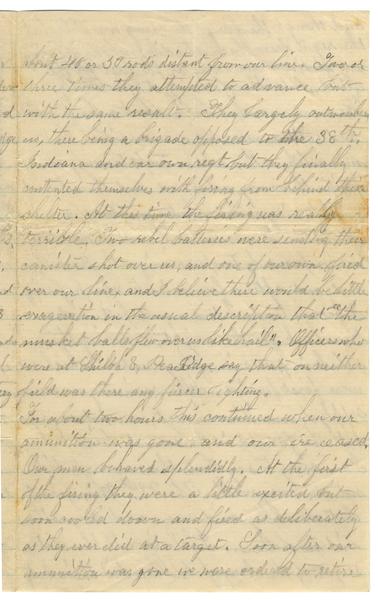 about 40 or 50 rods distant from our line. Two or
three times they attempted to advance but
with the same result. They largely outnumbered
us, there being a brigade opposed to the 38th
Indiana and our own regt. but they finally
contented themselves with firing from behind their
shelter. At this time the firing was really
terrible. Two rebel batteries were sending their
canister shot over us, and one of our own fired
over our line, and I believe there would be little
exaggeration in the usual description that "the
musket balls flew over us like hail". Officers who
were at Shiloh & Pea Ridge say that on neither
field was there any fiercer fighting.
For about two hours this continued when our
amunition was gone and our fire ceased.
Our men behaved splendidly. At the first
of the firing they were a little excited but
soon cooled down and fired as deliberately
as they ever did at a target. Soon after our
amunition was gone we were ordered to retire